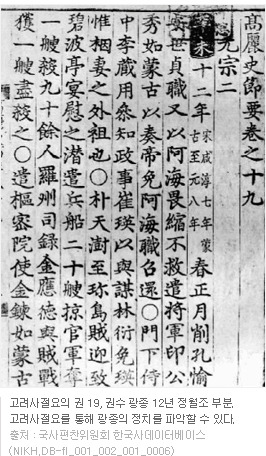 高麗史節要卷之十九
元宗二
未十二年 宋咸淳七年蒙古至元八年 春正月削孔愉
安世貞職又以阿海畏縮不救遣將軍印公
秀如蒙古以奏帝免阿海職召還○門下侍
中李藏用叅知政事崔瑛以與謀林衍免瑛
惟裀妻之外祖也○朴天澍至珎島賊迎致
碧波亭宴慰之潜遣兵船二十艘掠官軍奪
一艘殺九十餘人羅州司錄金應德與賊戰
獲一艘盡殺之○遣樞密院使金鍊如蒙古
고려사절요의 권 19, 권수 광종 12년 정월조 부분.
고려사절요를 통해 광종의 정치를 파악할 수 있다.
출처 : 국사편찬위원회 한국사데이터베이스
(NIKH,DB-fl_001_002_001_0006)